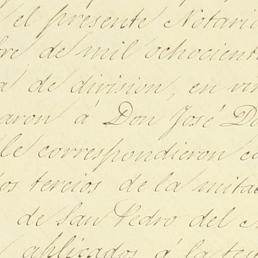 el presente Notario
bre de mil ochocient
a de division, en vir
aron á Don José D
le correspondieron c
os tercios de la mitad
de San Pedro del
aplicados á la te